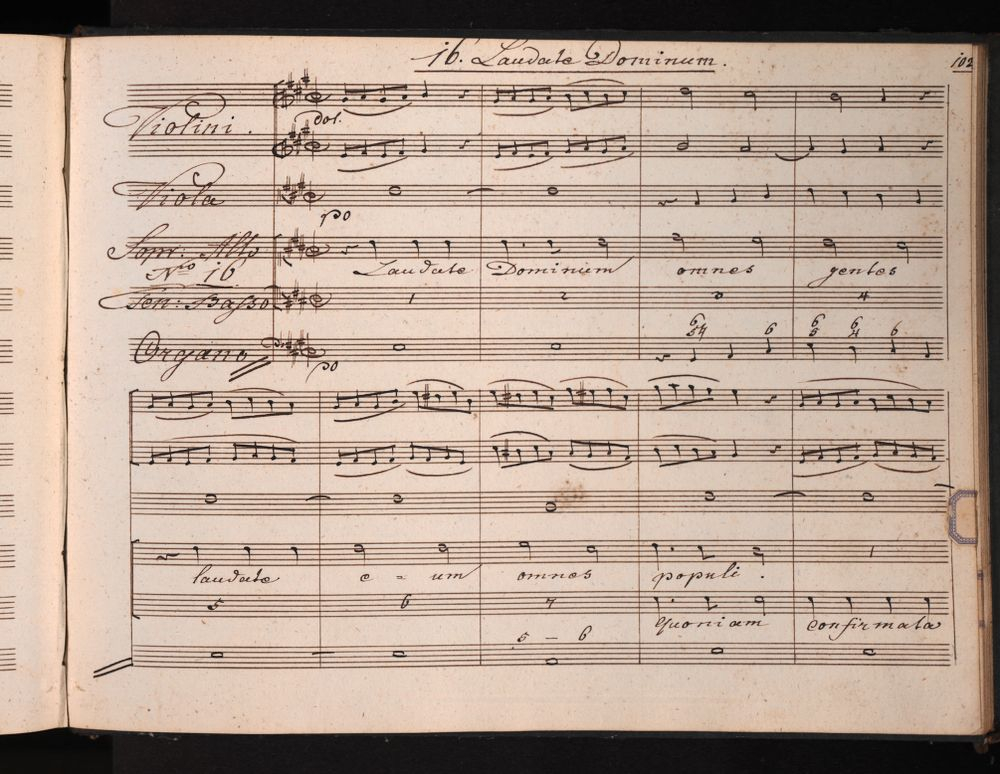 16. Laudate Dominum.
102
Violini.
dol.
Viola
po
Sopr: Alto
Laudate Dominum omnes gentes
Nro 16
Ten: Basso
1 2 3 4
6 6 6 6
54 6 5 4 6
Organo
po
laudate e = um omnes populi.
5 6 7
Quoniam confirmata
5 – 6